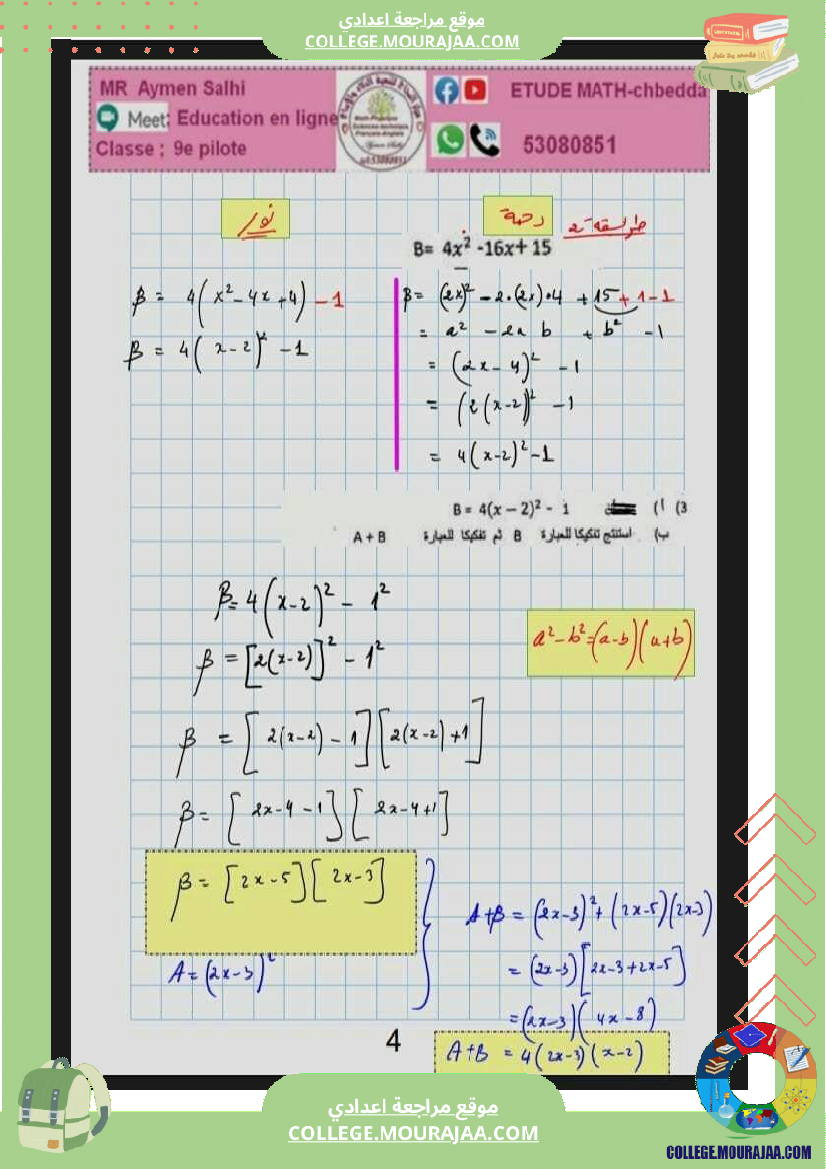 موقع مراجعة اعدادي
COLLEGE.MOURAJAA.COM
MR Aymen Salhi
Meet: Education en ligne
Classe : 9e pilote
ETUDE MATH-chbedda
53080851
نور
رحمة
طريقة 2
B= 4x² -16x+ 15
β = 4(x² - 4x + 4) - 1
β = 4(x - 2)² - 1
β = (2x)² - 2•(2x)•4 + 15 + 1 - 1
= a² - 2a b + b² - 1
= (2x - 4)² - 1
= (2(x-2))² - 1
= 4(x-2)² - 1
3) أ) B = 4(x – 2)² - 1
ب) استنتج تفكيكا للعبارة B ثم تفكيكا للعبارة A + B
β = 4(x-2)² - 1²
β = [2(x-2)]² - 1²
a² - b² = (a-b)(a+b)
β = [2(x-2) - 1][2(x-2) + 1]
β = [2x-4-1][2x-4+1]
β = [2x-5][2x-3]
A = (2x-3)²
A+β = (2x-3)² + (2x-5)(2x-3)
= (2x-3)[2x-3+2x-5]
= (2x-3)(4x-8)
A+B = 4(2x-3)(x-2)
4
موقع مراجعة اعدادي
COLLEGE.MOURAJAA.COM
COLLEGE.MOURAJAA.COM